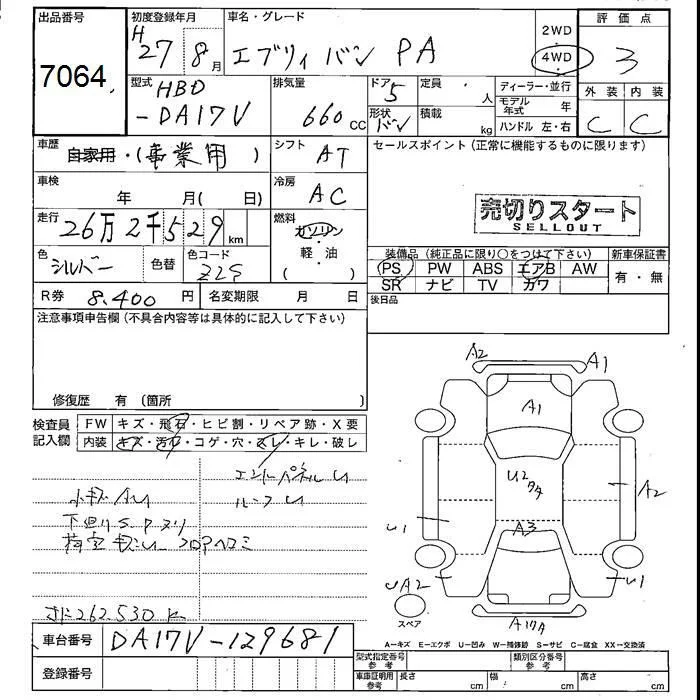 出品番号
7064
初度登録年月
H 27年 8月
車名・グレード
エブリィ バン PA
2WD
4WD
評価点
3
型式
HBD
-DA17V
排気量
660 CC
ドア
5
形状
バン
定員 人
積載 kg
ディーラー・並行
モデル年式 年
ハンドル 左・右
外装 内装
C C
車歴
自家用・(事業用)
シフト
AT
セールスポイント(正常に機能するものに限ります)
車検 年 月( 日)
冷房
AC
売切りスタート
SELLOUT
走行
26万2千529km
燃料
ガソリン
軽・油
( )
色
シルバー
色替
色コード
Z2S
装備品(純正品に限り○をつけて下さい) 新車保証書
PS PW ABS エアB AW
SR ナビ TV カワ
有・無
R券 8,400円
名変期限 月 日
後日品
注意事項申告欄(不具合内容等は具体的に記入して下さい)
修復歴 有(箇所 )
検査員記入欄
FW キズ・飛石・ヒビ割・リペア跡・X要
内装 キズ・汚れ・コゲ・穴・スレ・キレ・破レ
エンドパネルU
小キズAU
ルーフU
下廻りS、P、ヌリ
フロアヘコミ
262.530K
A2 A1
A1
U2
A2
U1
A3
UA2
U1
スペア
A=キズ E=エクボ U=凹み W=補修跡 S=サビ C=腐食 XX=交換済
車台番号 DA17V-129681
登録番号
型式指定番号 参考
類別区分番号 参考
車庫証明用 参考
長さ cm
幅 cm
高さ cm